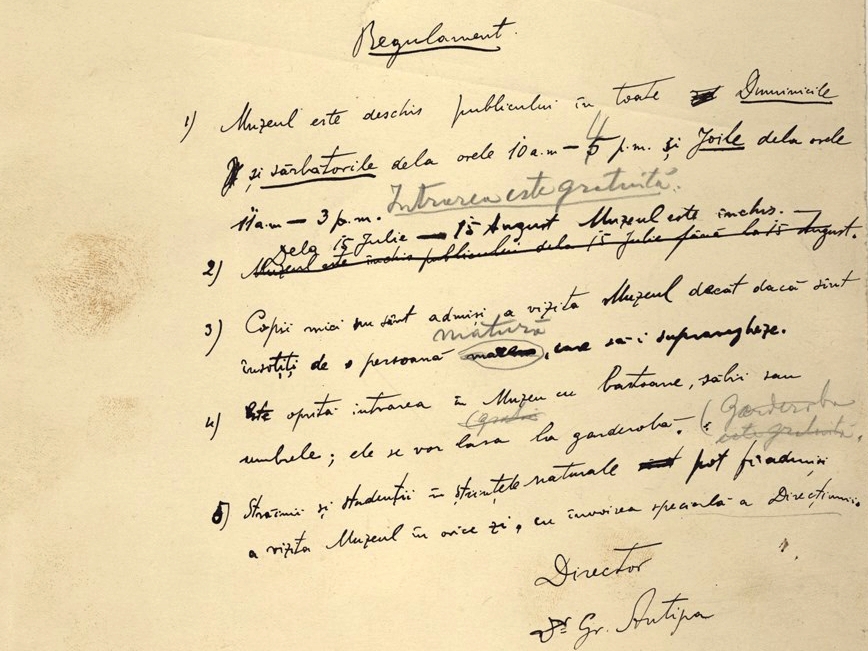 Regulament
1) Muzeul este deschis publicului în toate Duminicile
și sărbătorile dela orele 10 a.m – 4 5 p.m. și Joile dela orele
11 a.m – 3 p.m. Intrarea este gratuită.
Dela 15 Julie — 15 August Muzeul este închis.
2) Muzeul este închis publicului dela 15 Julie până la 15 August.
3) Copii mici nu sânt admiși a vizita Muzeul decât dacă sînt
matură
însotiți de o persoană , care să-i supravegheze.
4) Este oprită intrarea în Muzeu cu bastoane, săbii sau
umbrele; ele se vor lăsa la garderobă. (gratis (Garderoba
este gratuită.
5) Străinii și studenții în științele naturale pot fi admiși
a vizita Muzeul în orice zi, cu învoirea specială a Direcțiunii.
Director
Dr Gr. Antipa